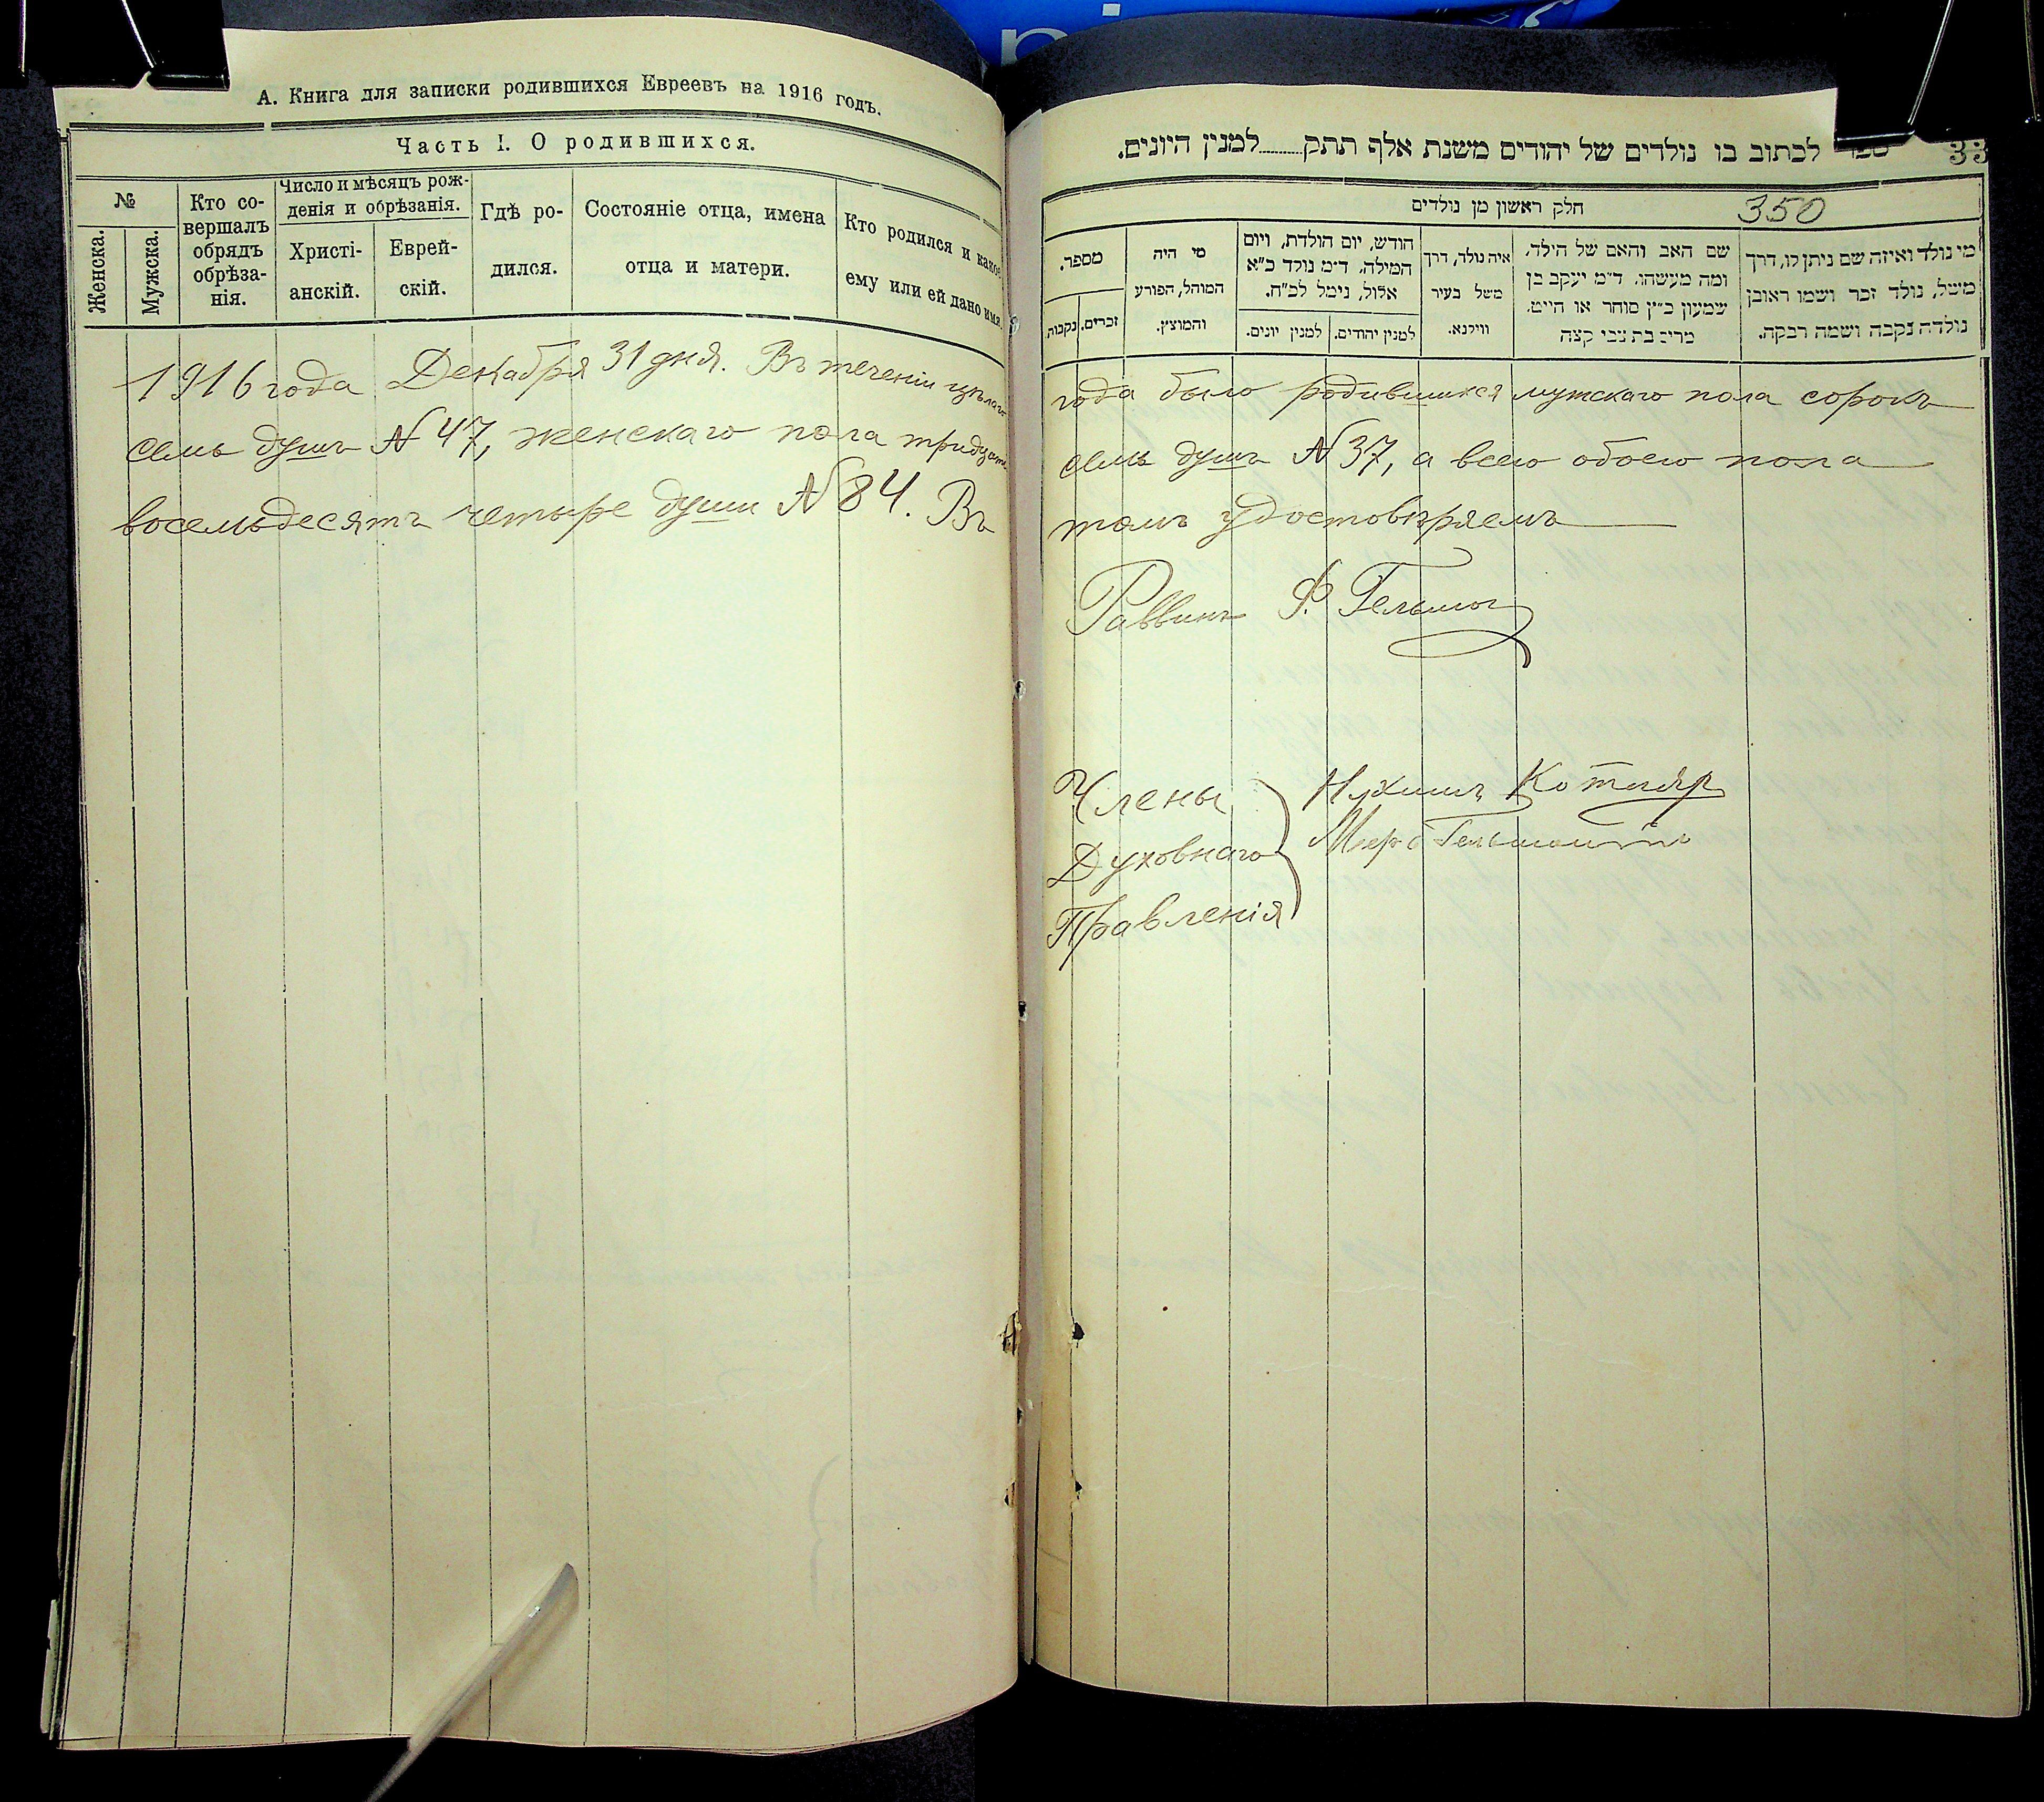 А. Книга для записки родившихся Евреевъ на 1916 годъ.
Часть I. О родившихся.
№
Женска.
Мужска.
Кто со-
вершалъ
обрядъ
обрѣза-
нія.
Число и мѣсяцъ рож-
денія и обрѣзанія.
Христі-
анскій.
Еврей-
скій.
Гдѣ ро-
дился.
Состояніе отца, имена
отца и матери.
Кто родился и какое
ему или ей дано имя.
1916 года Декабря 31 дня. Въ теченіи цѣлаго
семь душъ № 47, женскаго пола тридцать
восемьдесятъ четыре души № 84. Въ
לכתוב בו נולדים של יהודים משנת אלף תתק למנין היונים.
33
חלק ראשון מן נולדים
350
מספר.
זכרים.
נקבות.
מי היה
המוהל, הפורע
והמוצץ.
חודש, יום הולדת, ויום
המילה. ד״מ נולד כ״א
אלול, נימל לכ״ח.
למנין יהודים.
למנין יונים.
איה נולד, דרך
משל בעיר
ווילנא.
שם האב והאם של הילד.
ומה מעשהו. ד״מ יעקב בן
שמעון כ״ץ סוחר או חייט.
בת צבי קצה
מי נולד ואיזה שם ניתן לו, דרך
משל, נולד זכר ושמו ראובן
נולדה נקבה ושמה רבקה.
года было родившихся мужскаго пола сорокъ
семь душъ № 37, а всего обоего пола
томъ удостовѣряемъ
Раввинъ Ф.
Члены
Духовнаго
Правленія